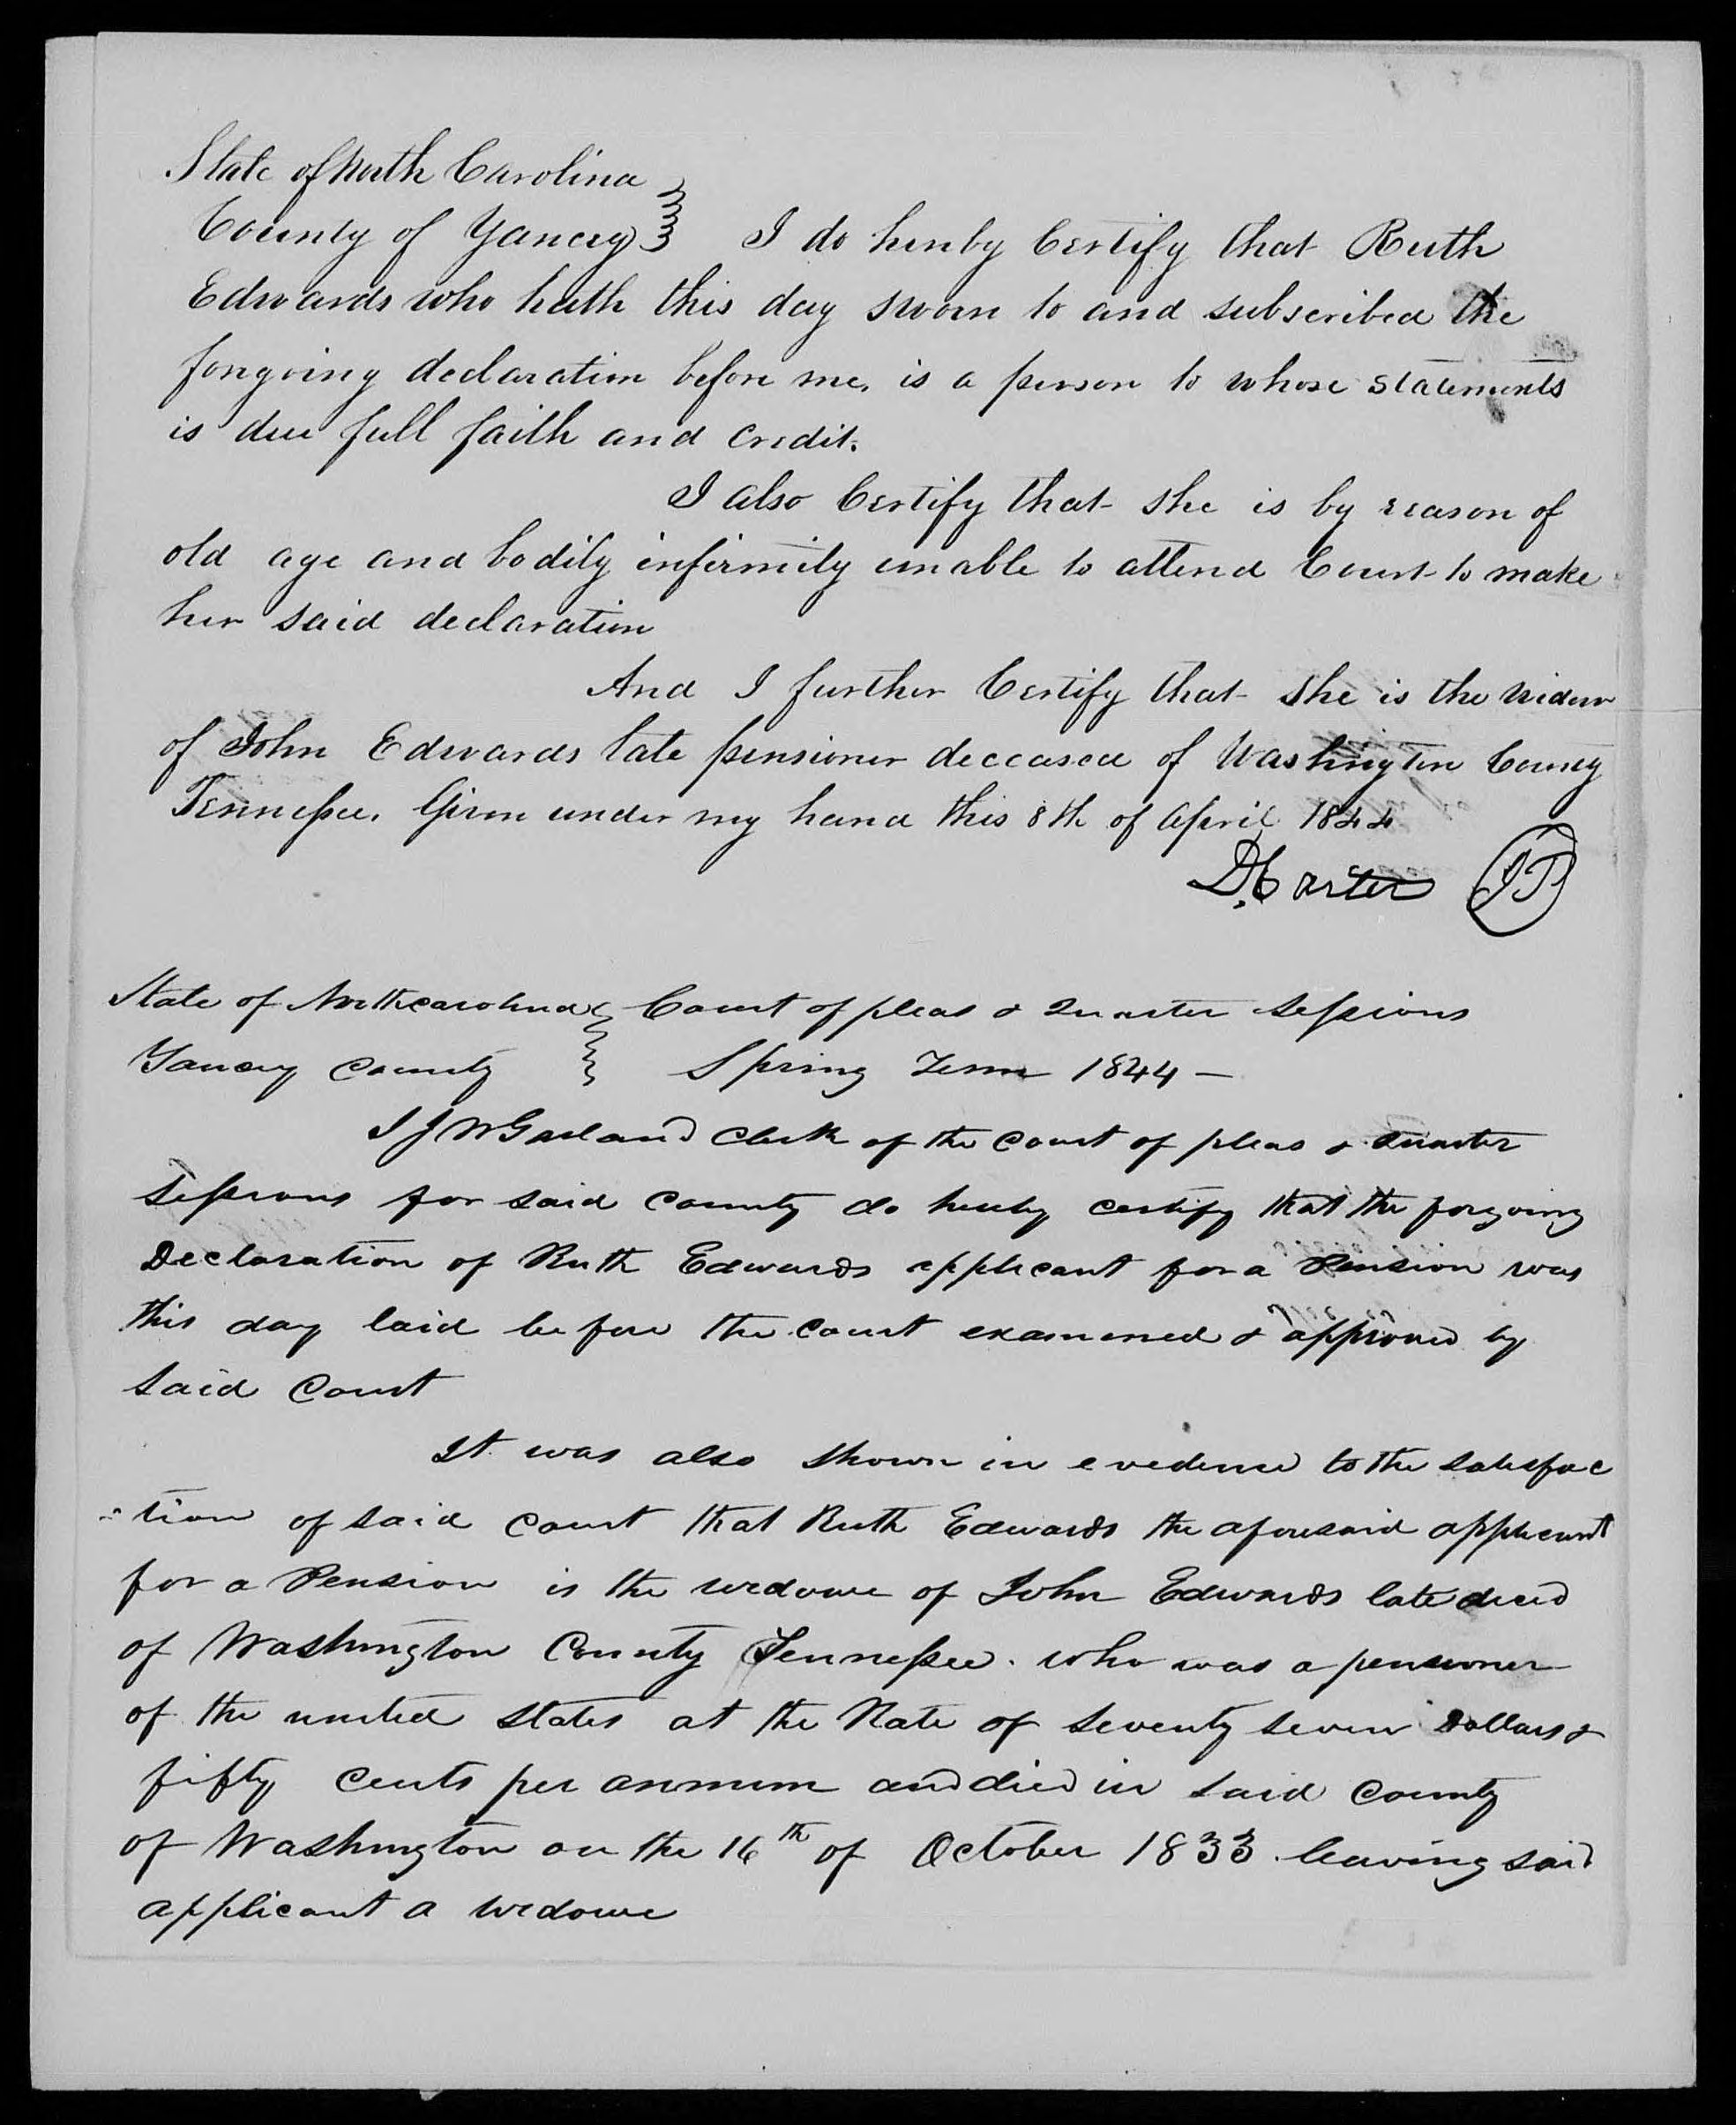 State of North Carolina
County of Yancey I do herby Certify that Ruth
Edwards who hath this day sworn to and subscribed the
forgoing declaration before me, is a person to whose statements
is due full faith and credit.
I also Certify that she is by reason of
old age and bodily infirmity unable to attend Court to make
her said declaration
And I further Certify that she is the widow
of John Edwards late pensioner deceased of Washington County
Tennessee. Given under my hand this 8th of April 1844
D. Carter JP
State of Northcarolina Court of pleas & Quarter Sessions
Yancey County Spring Term 1844 —
I J W Garland Clerk of the Court of pleas & Quarter
Sessions for said County do hereby certify that the forgoing
Declaration of Ruth Edwards applicant for a Pension was
this day laid before the Court examened & approved by
said Court
It was also shown in evedence to the satisfac
-tion of said Court that Ruth Edwards the aforesaid applicant
for a Pension is the widowe of John Edwards late decd
of Washington County Tennessee. who was a pensioner
of the united States at the Rate of seventy seven Dollars &
fifty cents per annum and died in said County
of Washington on the 16th of October 1833. leaving said
applicant a widowe